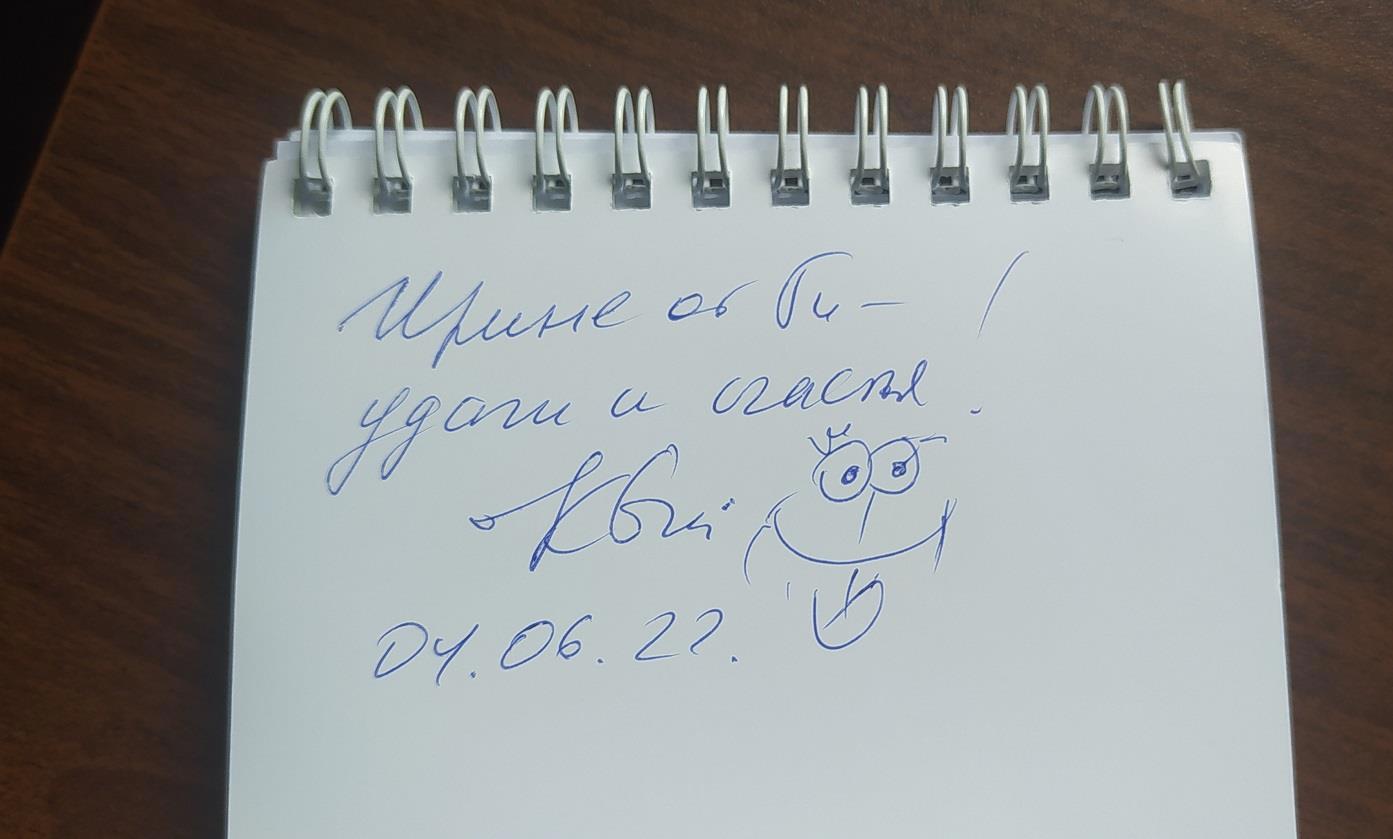 Ирине от Ти -
удачи и счастья!
04.06.22.